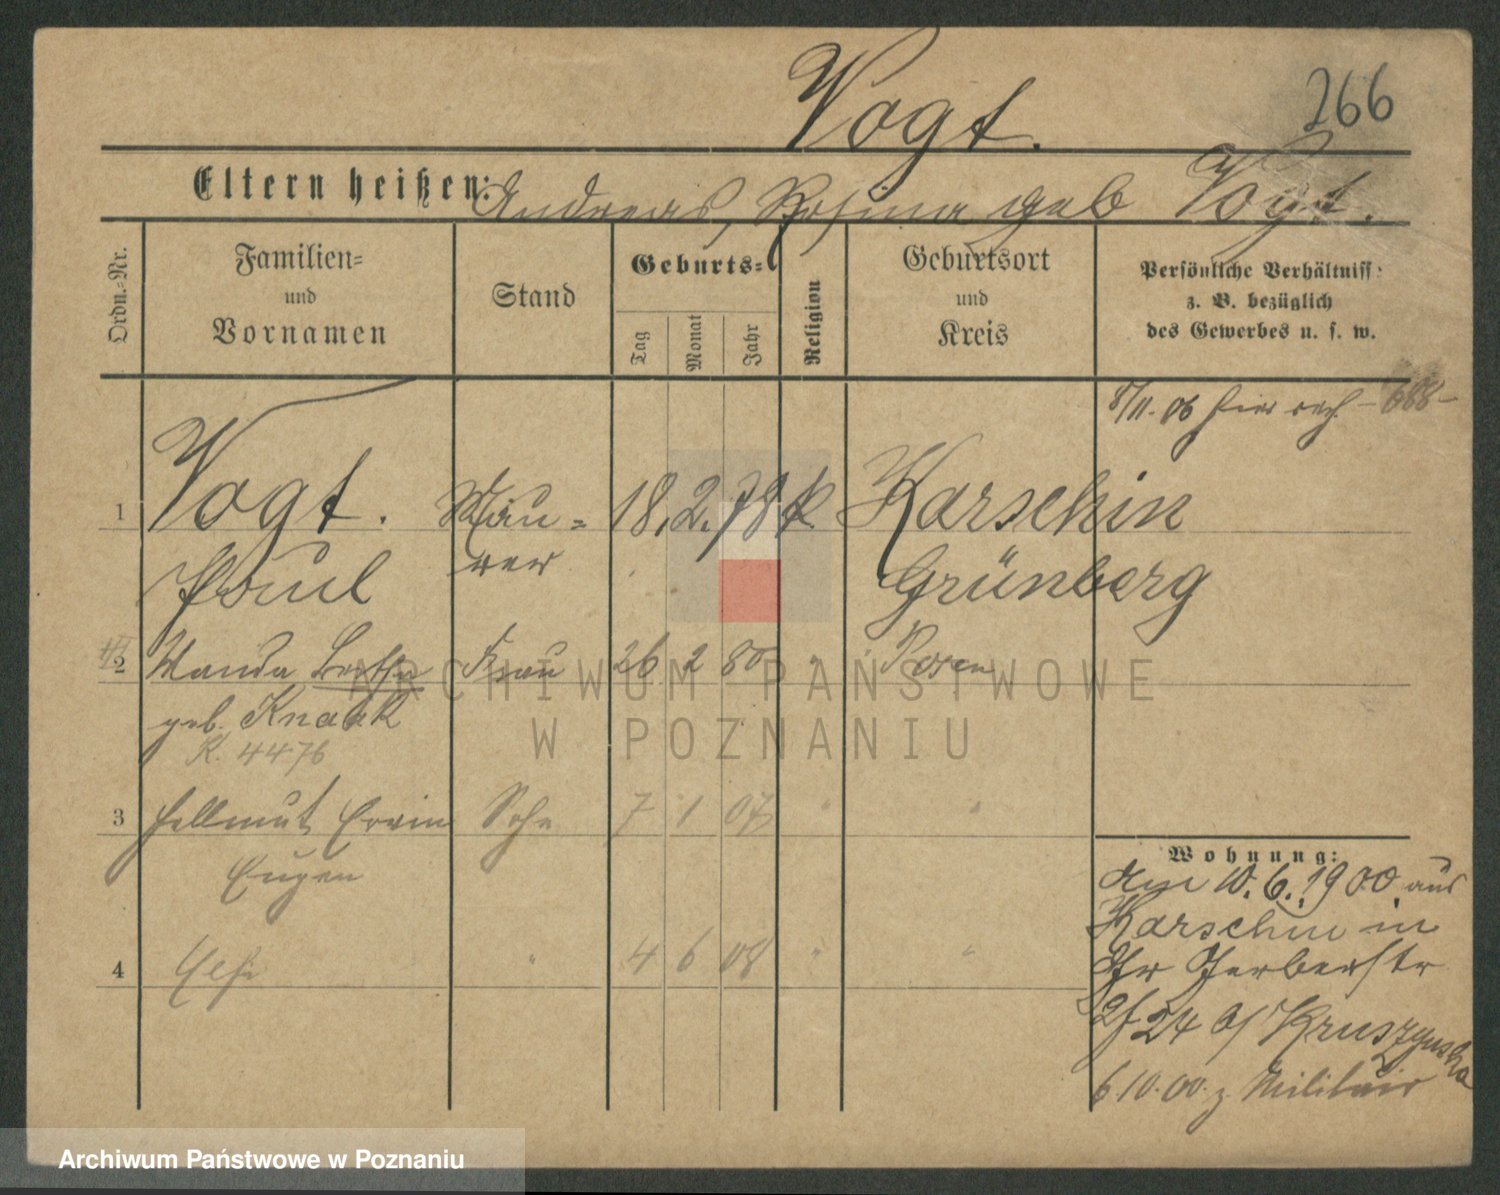 Vogt.
266
Eltern heißen: Andreas, Rosina geb Vogt.
Ordn.-Nr.
Familien-
und
Vornamen
Stand
Geburts-
Tag
Monat
Jahr
Religion
Geburtsort
und
Kreis
Persönliche Verhältniss:
z. B. bezüglich
des Gewerbes u. s. w.
8/11. 06 hier
1 Vogt. Mau= 18. 2. 78 k Karschin
rer
Paul Grünberg
2 Wanda Bertha Frau 26 2 80 " Posen
geb. Knaak
K. 4476
3 Hellmut Erwin Sohn 7 1 07 " "
Eugen
4 " 4 6 08 " "
Wohnung:
Am 10. 6. 1900 aus
Karschin in
Gerberstr
24 b/ Kruszynska
6.10.00. z. Militair
ARCHIWUM PAŃSTWOWE
W POZNANIU
Archiwum Państwowe w Poznaniu